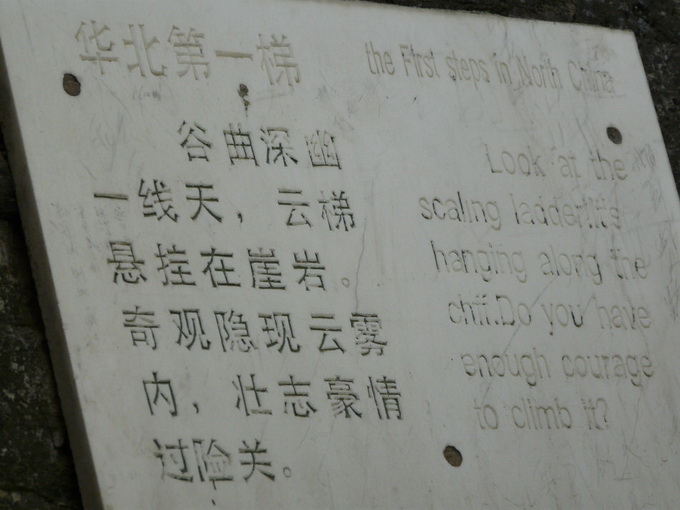 华北第一梯
谷曲深幽
一线天，云梯
悬挂在崖岩。
奇观隐现云雾
内、壮志豪情
过险关。
the First steps in North China
Look at the
scaling ladder.It's
hanging along the
cliff.Do you have
enough courage
to climb it?